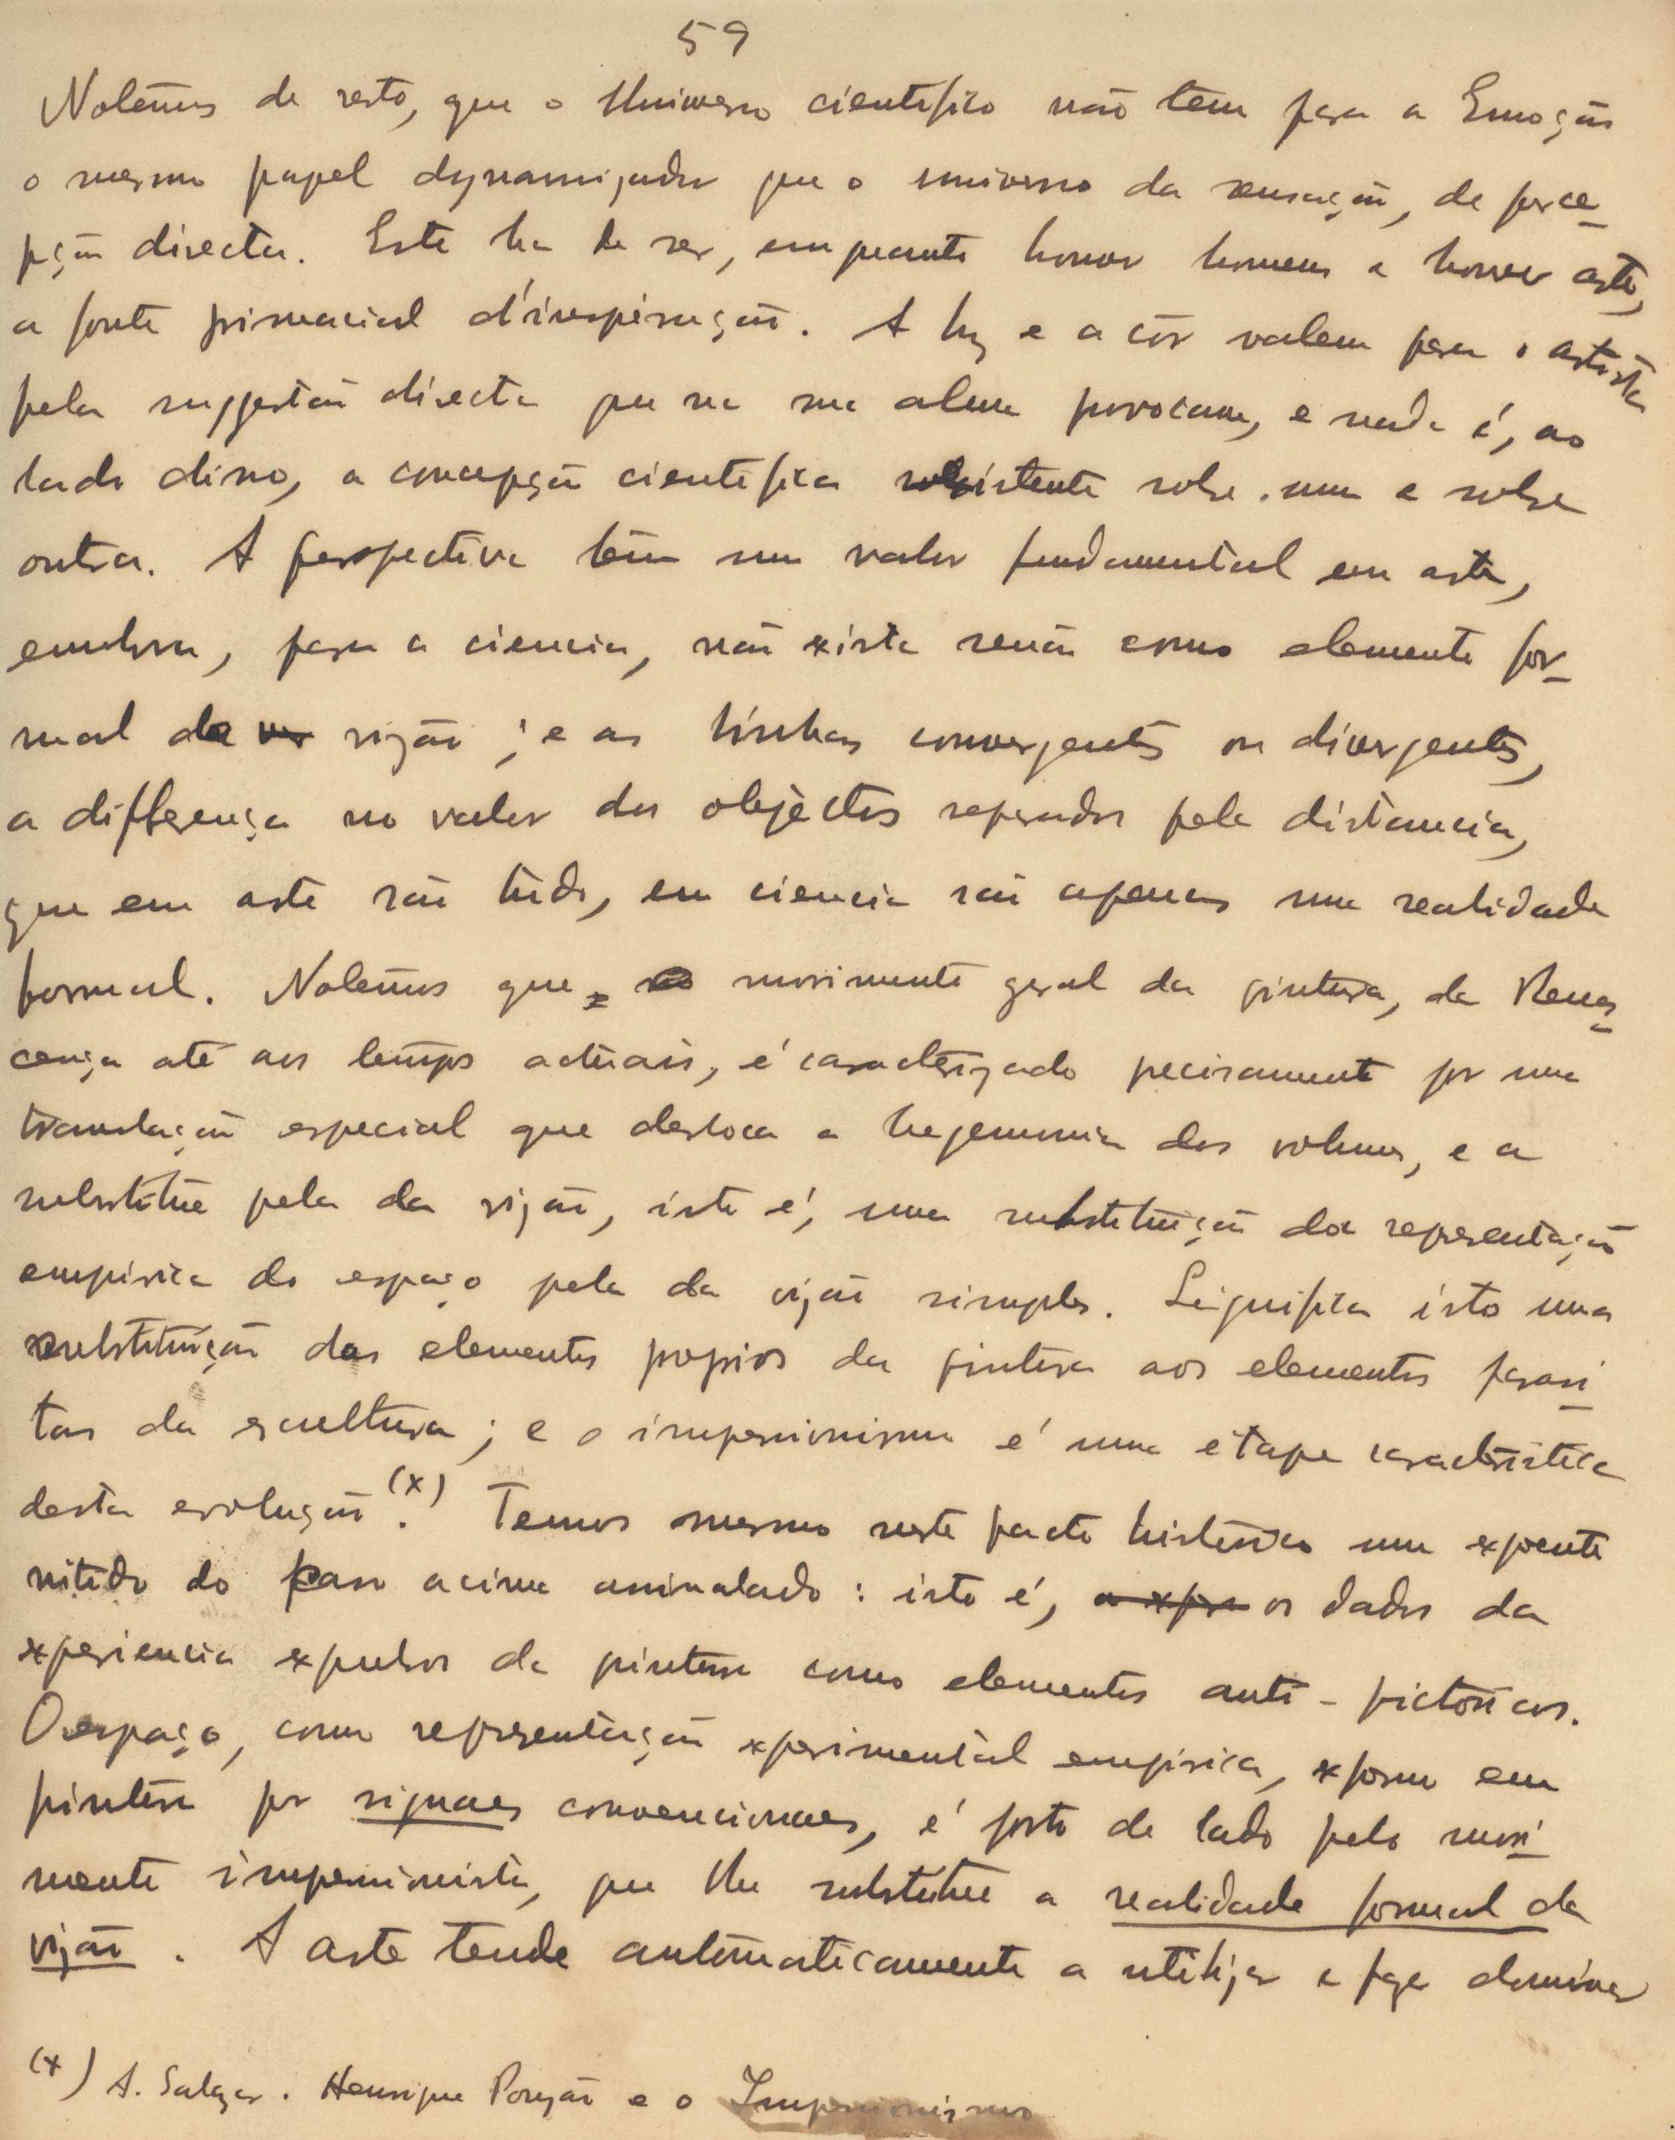 59
Notemos de resto, que o Universo cientifico não tem para a Emoção
o mesmo papel dynamizador que o universo da sensação, de perce-
pção directa. Este ha de ser, emquanto houver homens e houver arte,
a fonte primacial d'inspiração. A luz e a côr valem para o artista
pela suggestão directa que na sua alma provocam, e nada é, ao
lado disso, a concepção cientifica subsistente sobre uma e sobre
outra. A perspectiva têm um valor fundamental em arte,
embora, para a ciencia, não exista senão como elemento for-
mal da visão; e as linhas convergentes ou divergentes,
a differença no valor dos objèctos separados pela distancia,
que em arte são tudo, em ciencia são apenas uma realidade
formal. Notemos que o movimento geral da pintura, da Renas-
cença até aos tempos actuais, é caracterizado precisamente por uma
translação especial que desloca a hegemonia dos volumes, e a
substitue pela da visão, isto é, uma substituição da representação
empirica do espaço pela da vizão simples. Significa isto uma
substituição dos elementos proprios da pintura aos elementos parasi-
tas da escultura; e o impressionismo é uma étape caracteristica
desta evolução (x). Temos mesmo neste facto historico um expoente
nitido do caso acima assinalado: isto é, os dados da
experiencia expulsos da pintura como elementos anti-pictóricos.
O espaço, como representação experimental empirica, expresso em
pintura por signaes convencionaes, é posto de lado pelo movi-
mento impressionista, que lhe substitue a realidade formal da
vizão. A arte tende automaticamente a utilizar e fazer dominar
(x) A. Salazar. Henrique Pousão e o Impressionismo